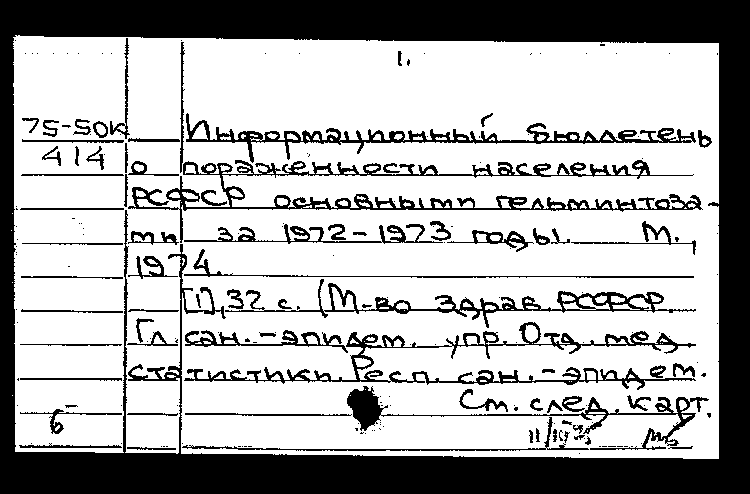 1.
75-50к Информационный бюллетень
414 о пораженности населения
РСФСР основными гельминтоза-
ми за 1972-1973 годы. М.,
1974.
[1], 32 с. (М-во здрав. РСФСР.
Гл. сан.-эпидем. упр. Отд. мед.
статистики. Респ. сан.-эпидем.
См. след. карт.
6